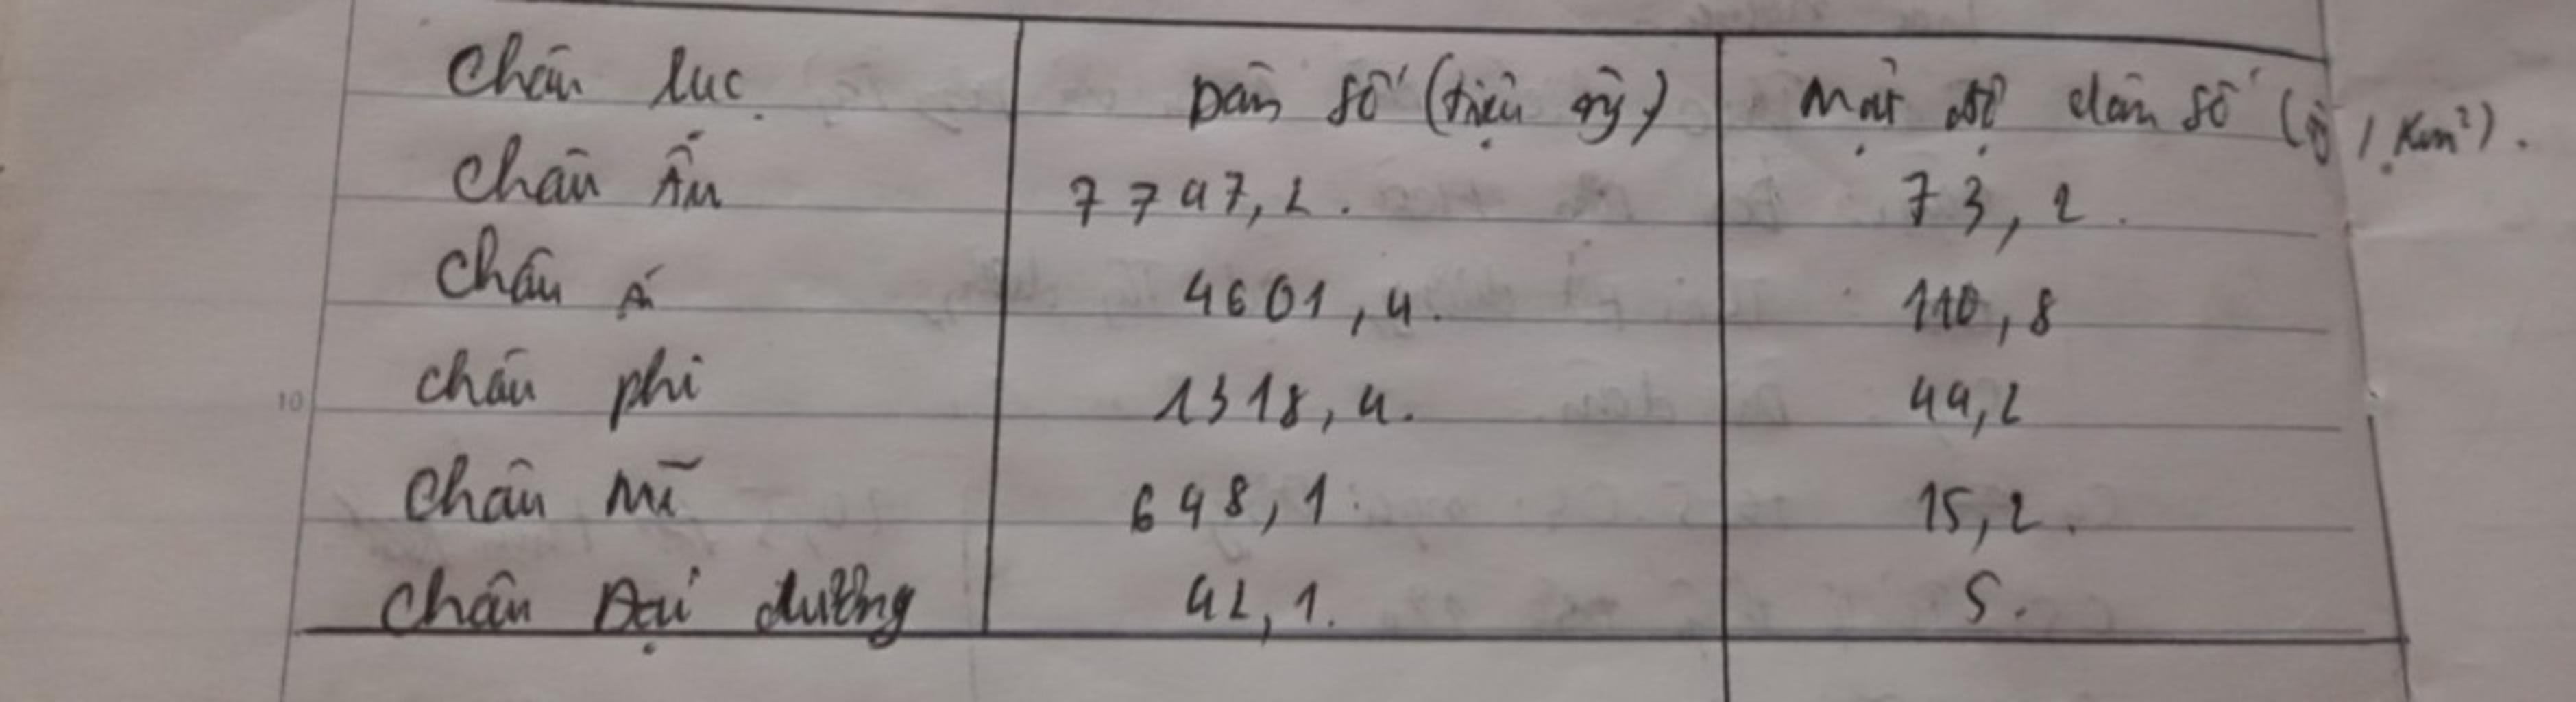 Châu lục Dân số (triệu ng) Mật độ dân số (ng / Km²).
Châu Âu 7747,2. 73,2.
Châu Á 4601,4. 110,8
châu phi 1318,4. 44,2
châu mĩ 648,1. 15,2.
châu Đại dương 42,1. 5.
10